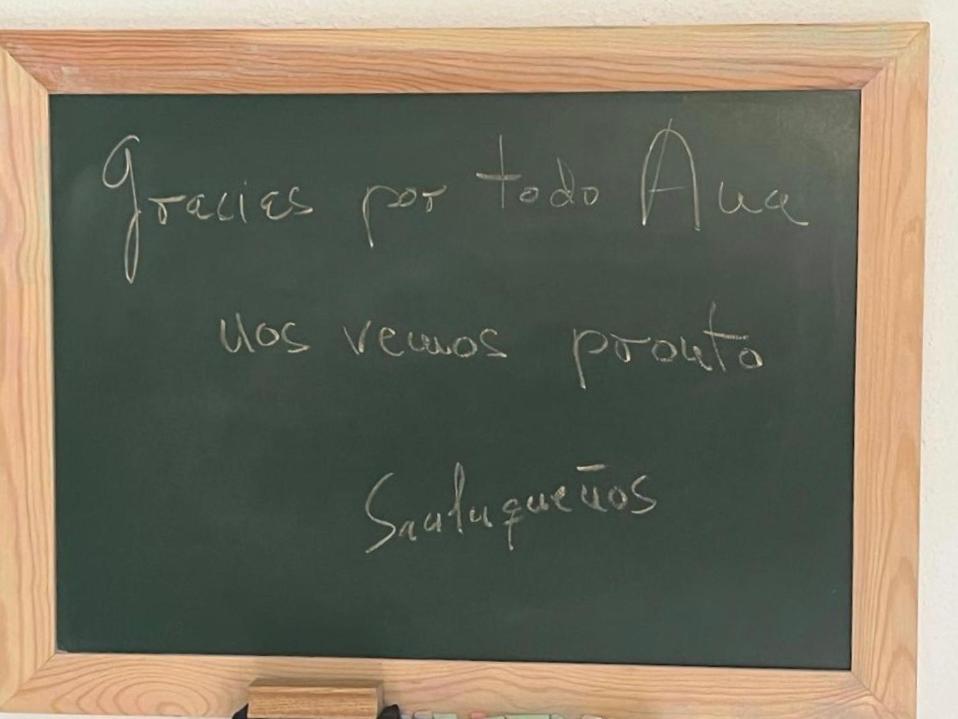 Gracias por todo Ana
nos vemos pronto
Sanluqueños